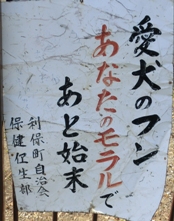 愛犬のフン
あなたのモラルで
あと始末
利保町自治会
保健衛生部